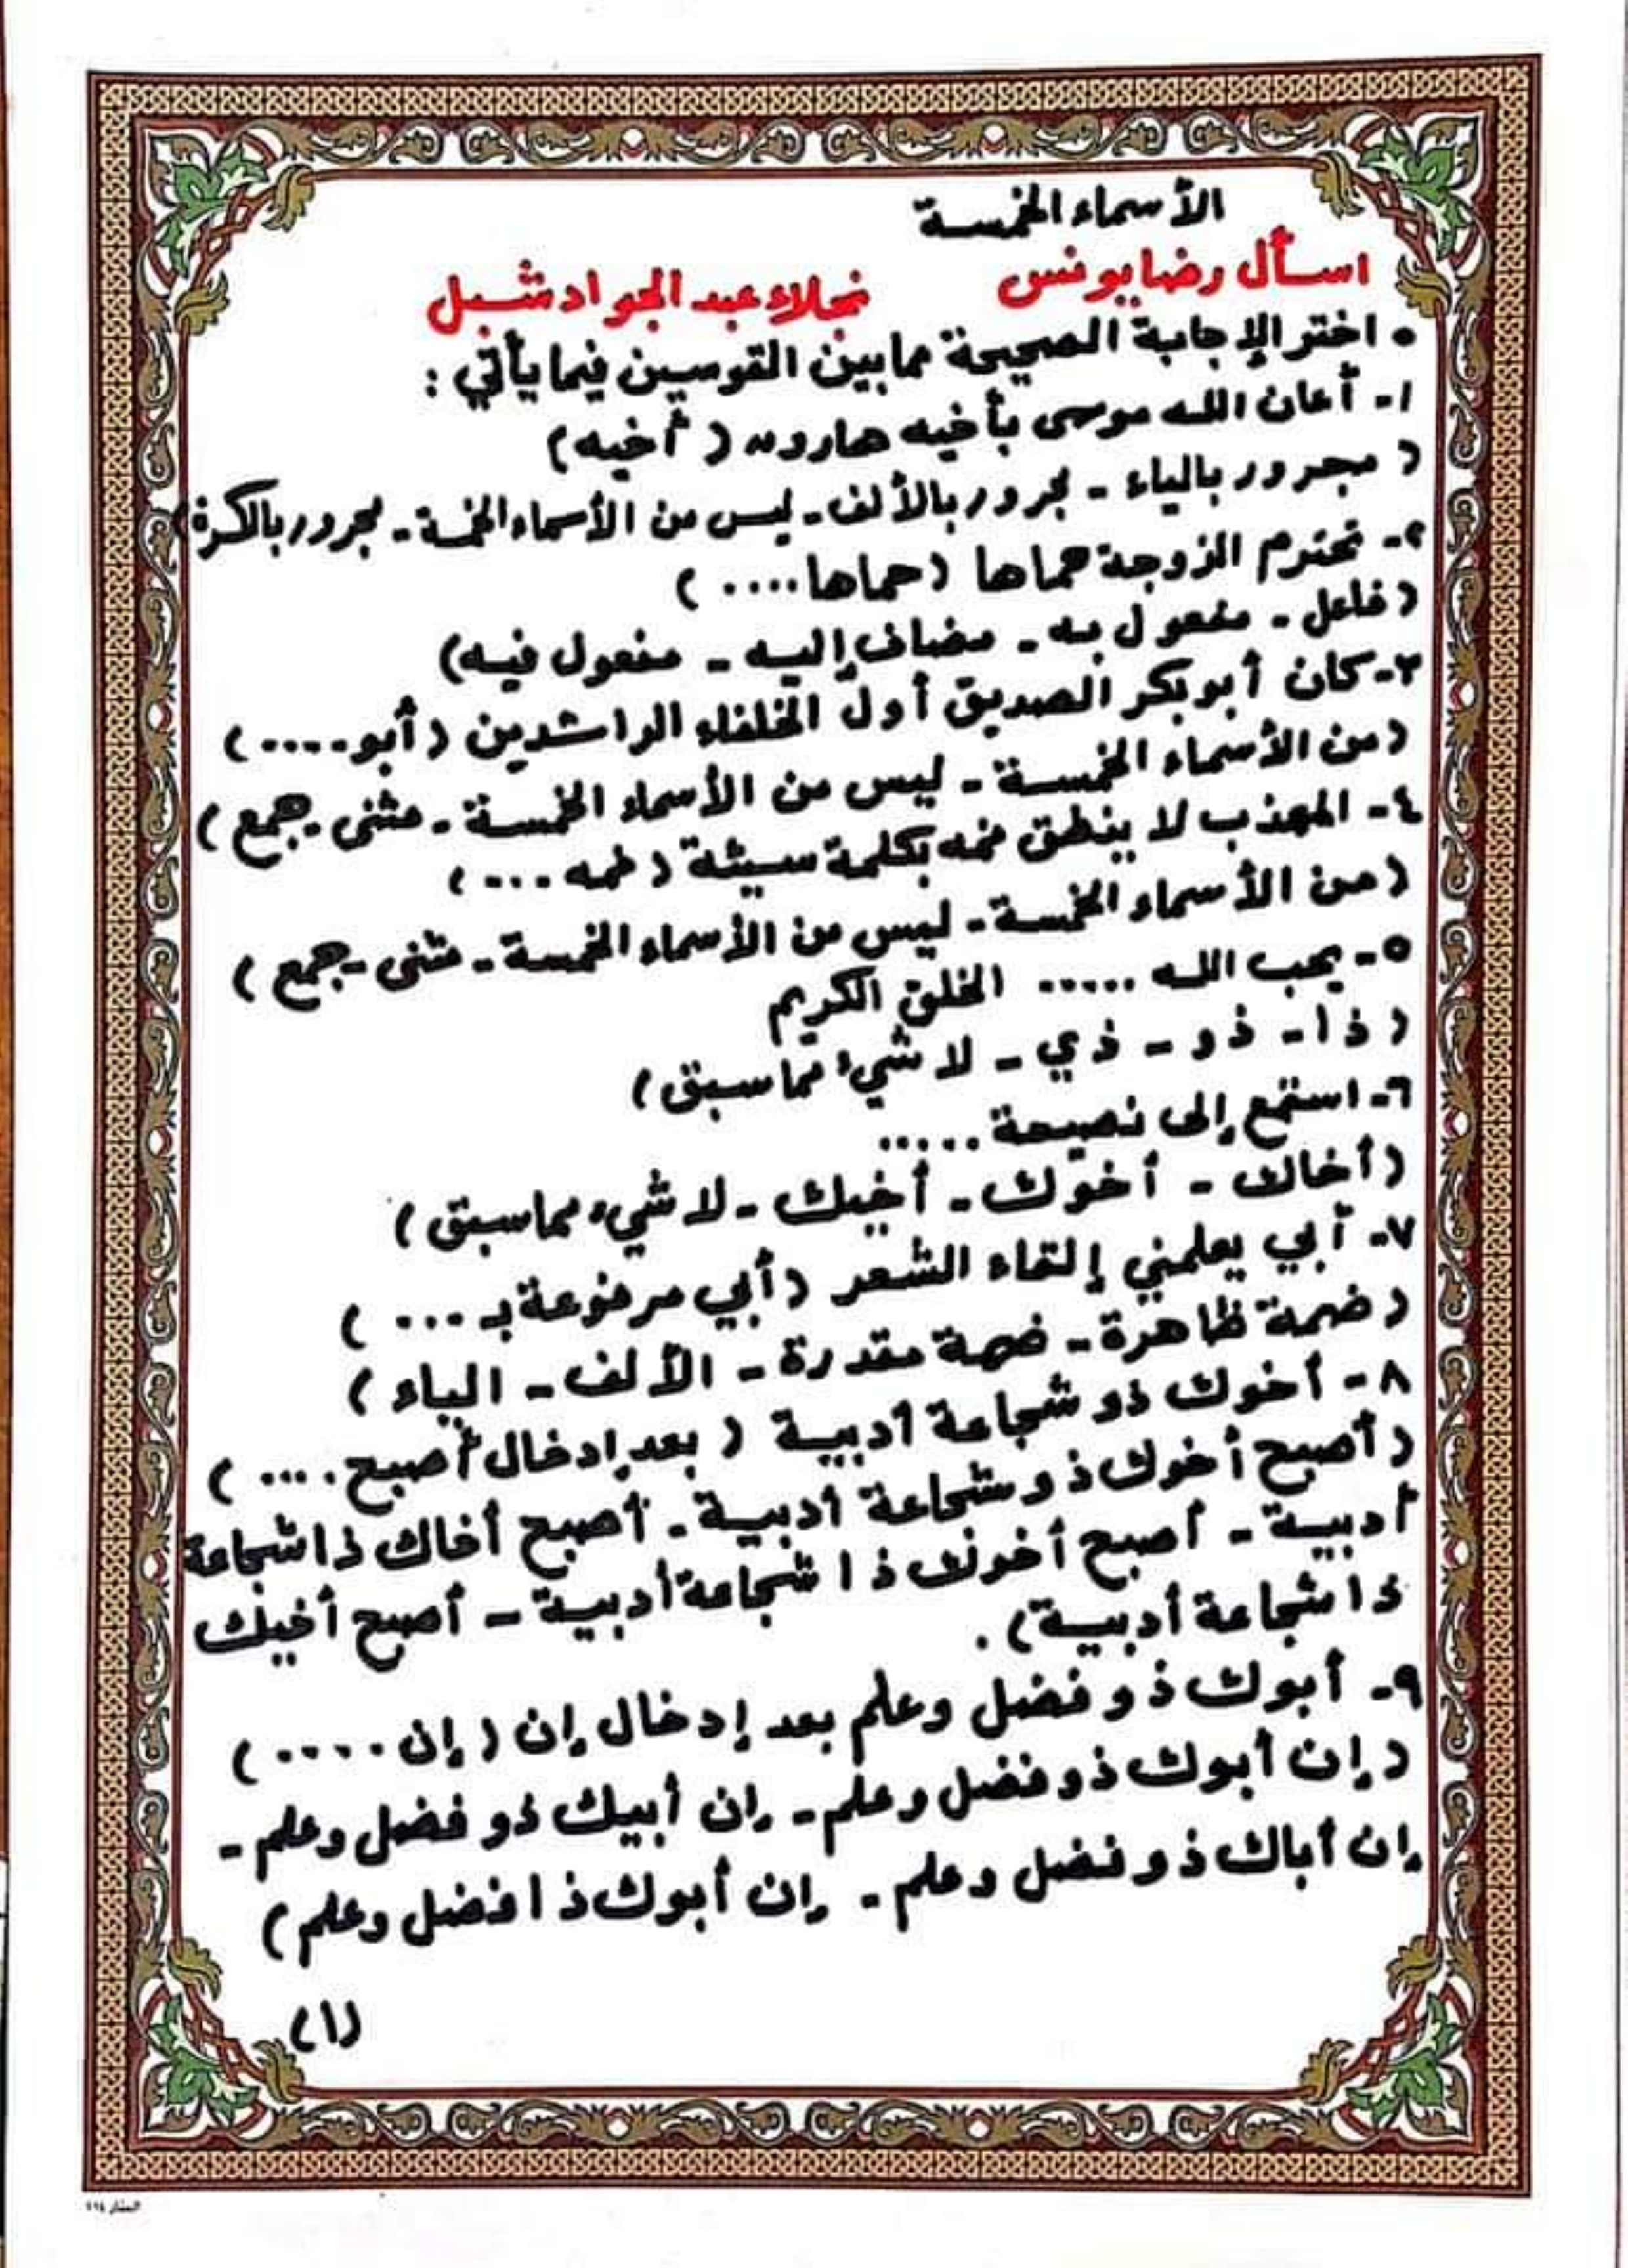 الأسماء الخمسة
اسأل رضا يونس نجلاء عبد الجواد شبل
• اختر الإجابة الصحيحة مما بين القوسين فيما يأتي :
١- أعان الله موسى بأخيه هارون ( أخيه )
( مجرور بالياء - مجرور بالألف - ليس من الأسماء الخمسة - مجرور بالكسرة )
٢- تحترم الزوجة حماها ( حماها .... )
( فاعل - مفعول به - مضاف إليه - مفعول فيه )
٣- كان أبو بكر الصديق أول الخلفاء الراشدين ( أبو .... )
( من الأسماء الخمسة - ليس من الأسماء الخمسة - مثنى - جمع )
٤- المهذب لا ينطق فمه بكلمة سيئة ( فمه ... )
( من الأسماء الخمسة - ليس من الأسماء الخمسة - مثنى - جمع )
٥- يحب الله ..... الخلق الكريم
( ذا - ذو - ذي - لا شيء مما سبق )
٦- استمع إلى نصيحة .....
( أخاك - أخوك - أخيك - لا شيء مما سبق )
٧- أبي يعلمني إلقاء الشعر ( أبي مرفوعة بـ ... )
( ضمة ظاهرة - ضمة مقدرة - الألف - الياء )
٨- أخوك ذو شجاعة أدبية ( بعد إدخال أصبح .... )
( أصبح أخوك ذو شجاعة أدبية - أصبح أخاك ذا شجاعة
أدبية - أصبح أخوك ذا شجاعة أدبية - أصبح أخيك
ذا شجاعة أدبية ) .
٩- أبوك ذو فضل وعلم بعد إدخال إن ( إن .... )
( إن أبوك ذو فضل وعلم - إن أبيك ذو فضل وعلم -
إن أباك ذو فضل وعلم - إن أبوك ذا فضل وعلم )
(١)
المنار ١١٤